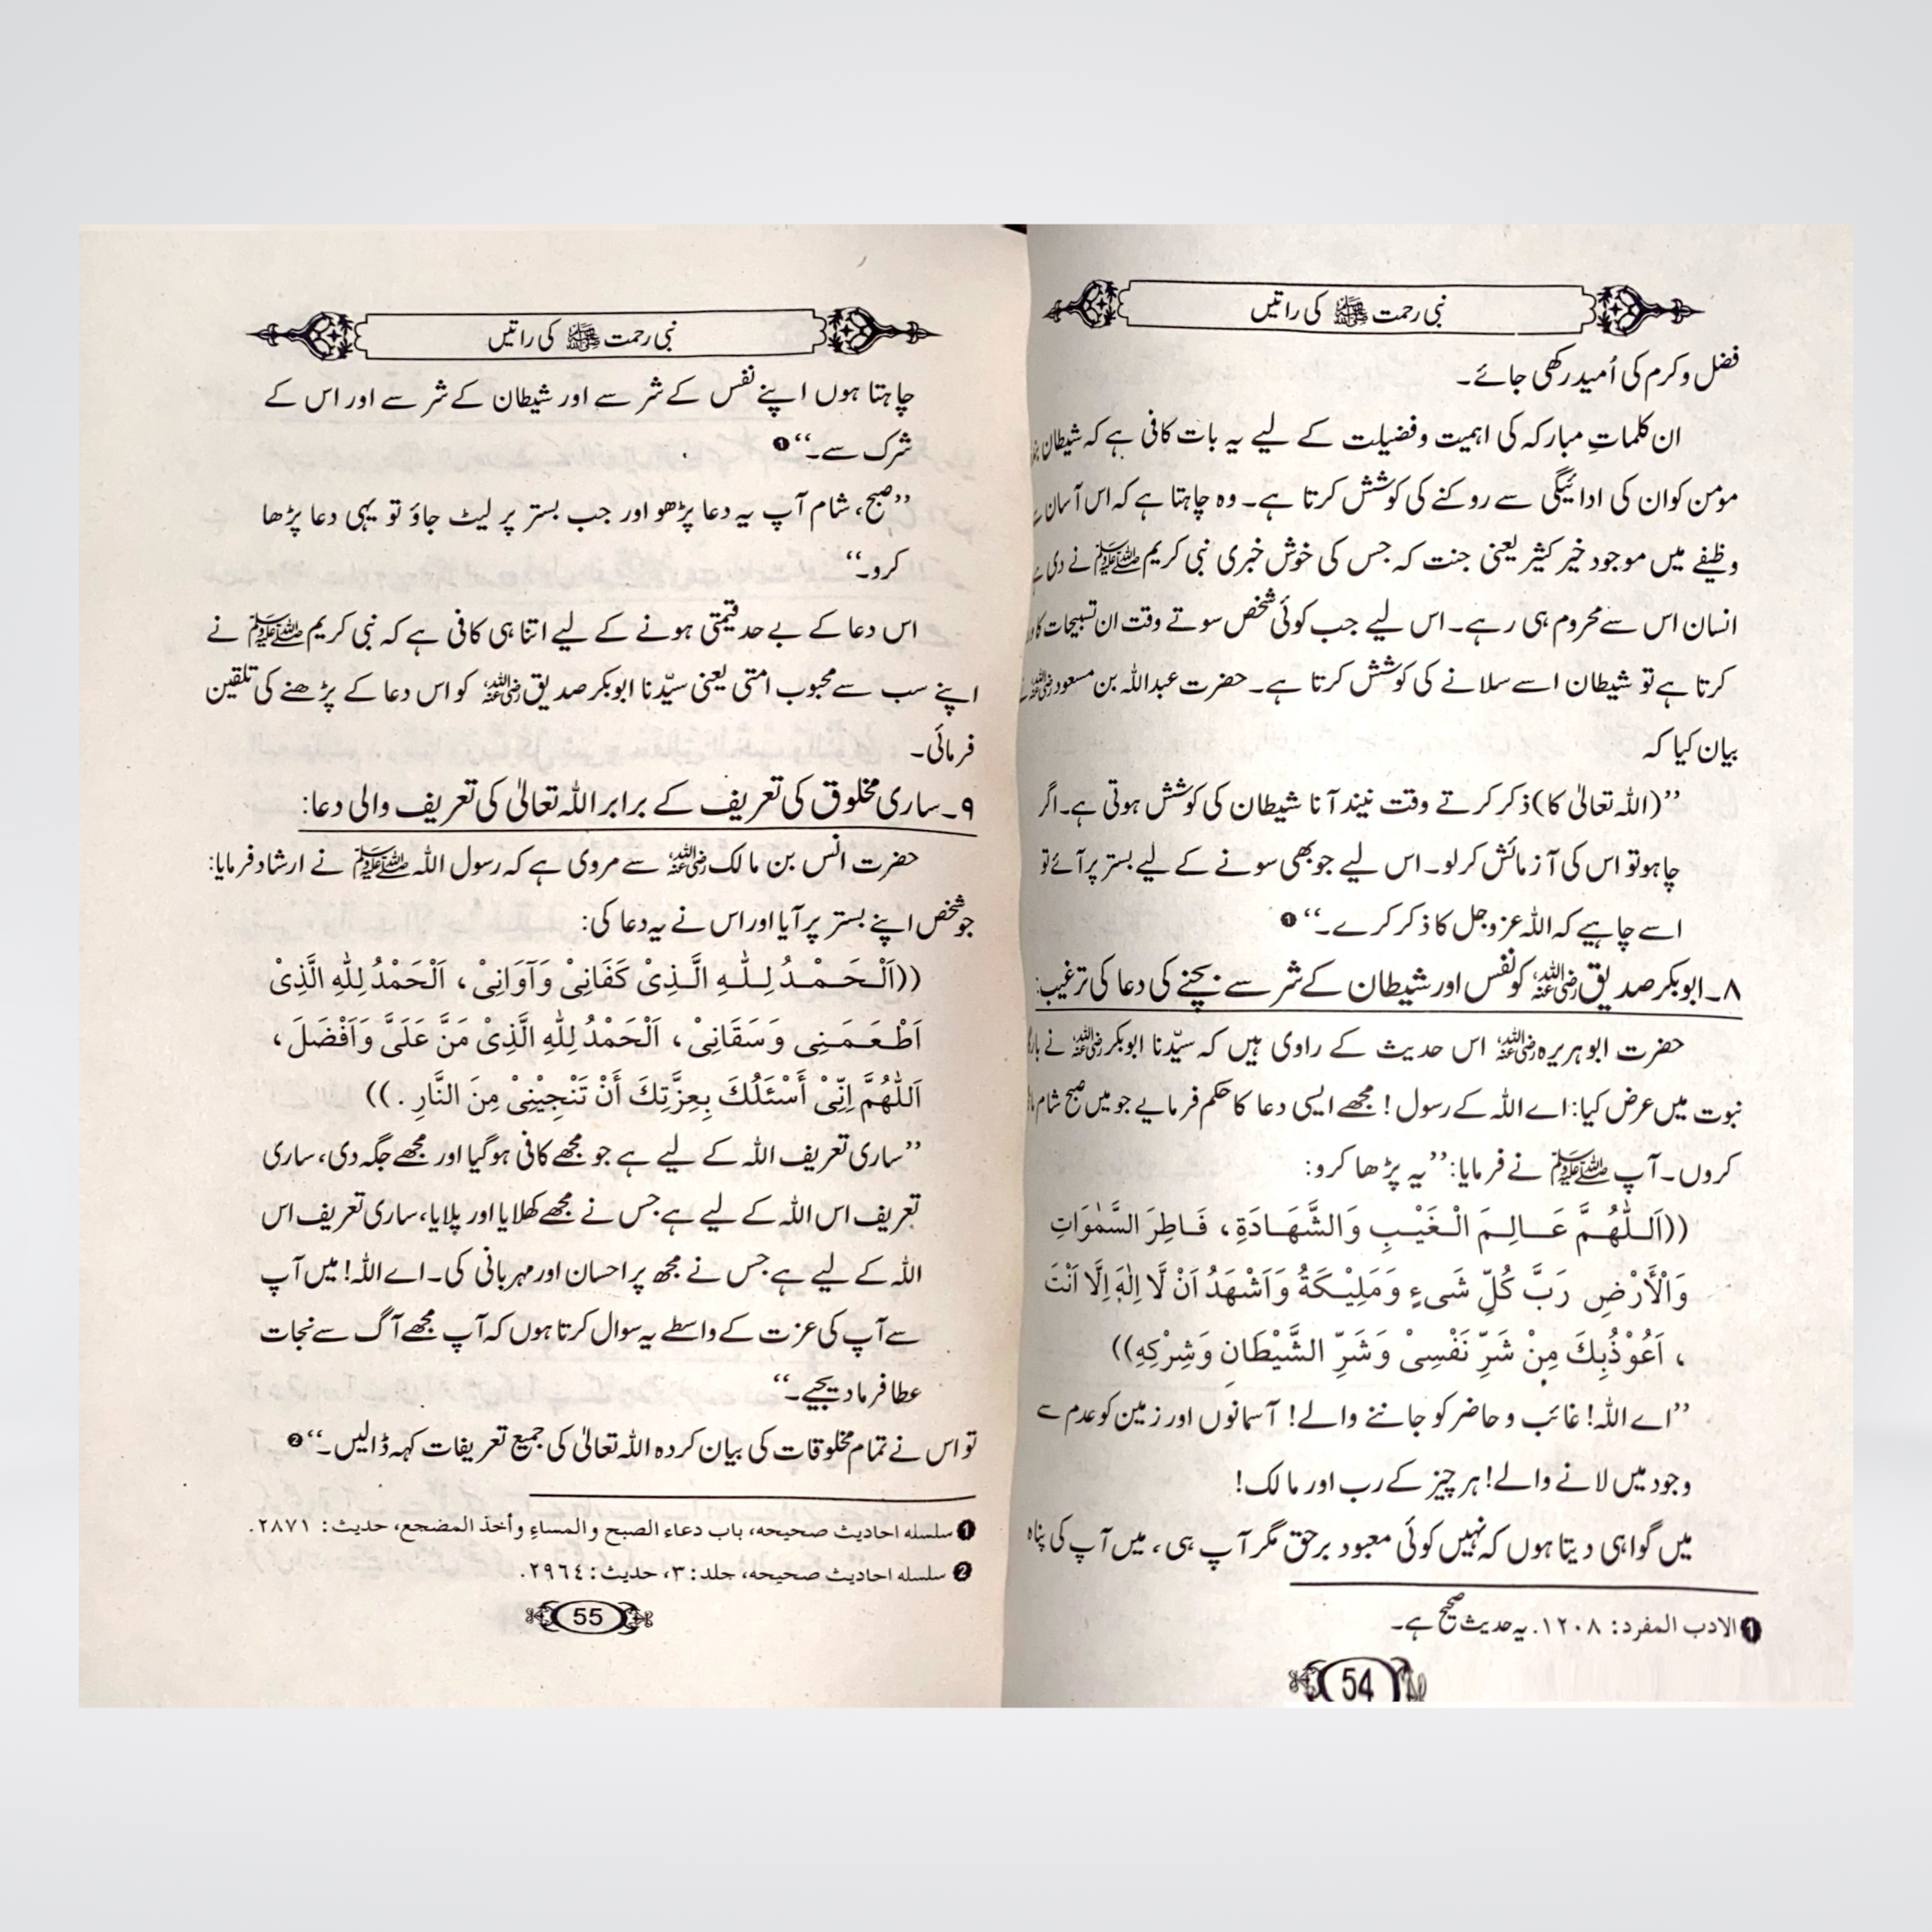 نبی رحمت ﷺ کی راتیں
فضل و کرم کی اُمید رکھی جائے۔
ان کلماتِ مبارکہ کی اہمیت و فضیلت کے لیے یہ بات کافی ہے کہ شیطان
مومن کو ان کی ادائیگی سے روکنے کی کوشش کرتا ہے۔ وہ چاہتا ہے کہ اس آسان سے
وظیفے میں موجود خیر کثیر یعنی جنت کہ جس کی خوش خبری نبی کریم ﷺ نے دی ہے
انسان اس سے محروم ہی رہے۔ اس لیے جب کوئی شخص سوتے وقت ان تسبیحات کا
کرتا ہے تو شیطان اسے سلانے کی کوشش کرتا ہے۔ حضرت عبداللہ بن مسعود رضی اللہ عنہ نے
بیان کیا کہ
’’(اللہ تعالیٰ کا) ذکر کرتے وقت نیند آنا شیطان کی کوشش ہوتی ہے۔ اگر
چاہو تو اس کی آزمائش کرلو۔ اس لیے جو بھی سونے کے لیے بستر پر آئے تو
اسے چاہیے کہ اللہ عزوجل کا ذکر کرے۔‘‘ ❶
۸۔ ابوبکر صدیق رضی اللہ عنہ کو نفس اور شیطان کے شر سے بچنے کی دعا کی ترغیب:
حضرت ابوہریرہ رضی اللہ عنہ اس حدیث کے راوی ہیں کہ سیّدنا ابوبکر رضی اللہ عنہ نے
نبوت میں عرض کیا: اے اللہ کے رسول! مجھے ایسی دعا کا حکم فرمایے جو میں صبح شام
کروں۔ آپ ﷺ نے فرمایا: ’’یہ پڑھا کرو:
((اَللّٰهُمَّ عَالِمَ الْغَيْبِ وَالشَّهَادَةِ، فَاطِرَ السَّمٰوَاتِ
وَالْأَرْضِ رَبَّ كُلِّ شَىءٍ وَمَلِيْكَةُ وَاَشْهَدُ اَنْ لَّا اِلٰهَ اِلَّا اَنْتَ
، اَعُوْذُبِكَ مِنْ شَرِّ نَفْسِىْ وَشَرِّ الشَّيْطَانِ وَشِرْكِهِ))
’’اے اللہ! غائب و حاضر کو جاننے والے! آسمانوں اور زمین کو عدم سے
وجود میں لانے والے! ہر چیز کے رب اور مالک!
میں گواہی دیتا ہوں کہ نہیں کوئی معبود برحق مگر آپ ہی، میں آپ کی پناہ
❶ الادب المفرد: ۱۲۰۸. یہ حدیث صحیح ہے۔
54
نبی رحمت ﷺ کی راتیں
چاہتا ہوں اپنے نفس کے شر سے اور شیطان کے شر سے اور اس کے
شرک سے۔‘‘ ❶
’’صبح، شام آپ یہ دعا پڑھو اور جب بستر پر لیٹ جاؤ تو یہی دعا پڑھا
کرو۔‘‘
اس دعا کے بے حد قیمتی ہونے کے لیے اتنا ہی کافی ہے کہ نبی کریم ﷺ نے
اپنے سب سے محبوب امتی یعنی سیّدنا ابوبکر صدیق رضی اللہ عنہ کو اس دعا کے پڑھنے کی تلقین
فرمائی۔
۹۔ ساری مخلوق کی تعریف کے برابر اللہ تعالیٰ کی تعریف والی دعا:
حضرت انس بن مالک رضی اللہ عنہ سے مروی ہے کہ رسول اللہ ﷺ نے ارشاد فرمایا:
جو شخص اپنے بستر پر آیا اور اس نے یہ دعا کی:
((اَلْحَمْدُ لِلّٰهِ الَّذِىْ كَفَانِىْ وَآوَانِىْ، اَلْحَمْدُ لِلّٰهِ الَّذِىْ
اَطْعَمَنِى وَسَقَانِىْ، اَلْحَمْدُ لِلّٰهِ الَّذِىْ مَنَّ عَلَىَّ وَاَفْضَلَ،
اَللّٰهُمَّ اِنِّىْ أَسْئَلُكَ بِعِزَّتِكَ أَنْ تَنْجِيْنِىْ مِنَ النَّارِ.))
’’ساری تعریف اللہ کے لیے ہے جو مجھے کافی ہوگیا اور مجھے جگہ دی، ساری
تعریف اس اللہ کے لیے ہے جس نے مجھے کھلایا اور پلایا، ساری تعریف اس
اللہ کے لیے ہے جس نے مجھ پر احسان اور مہربانی کی۔ اے اللہ! میں آپ
سے آپ کی عزت کے واسطے یہ سوال کرتا ہوں کہ آپ مجھے آگ سے نجات
عطا فرما دیجیے۔‘‘
تو اس نے تمام مخلوقات کی بیان کردہ اللہ تعالیٰ کی جمیع تعریفات کہہ ڈالیں۔‘‘ ❷
❶ سلسله احاديث صحيحه، باب دعاء الصبح والمساءِ وأخذ المضجع، حديث: ٢٨٧١.
❷ سلسله احاديث صحيحه، جلد: ٣، حديث: ٢٩٦٤.
55